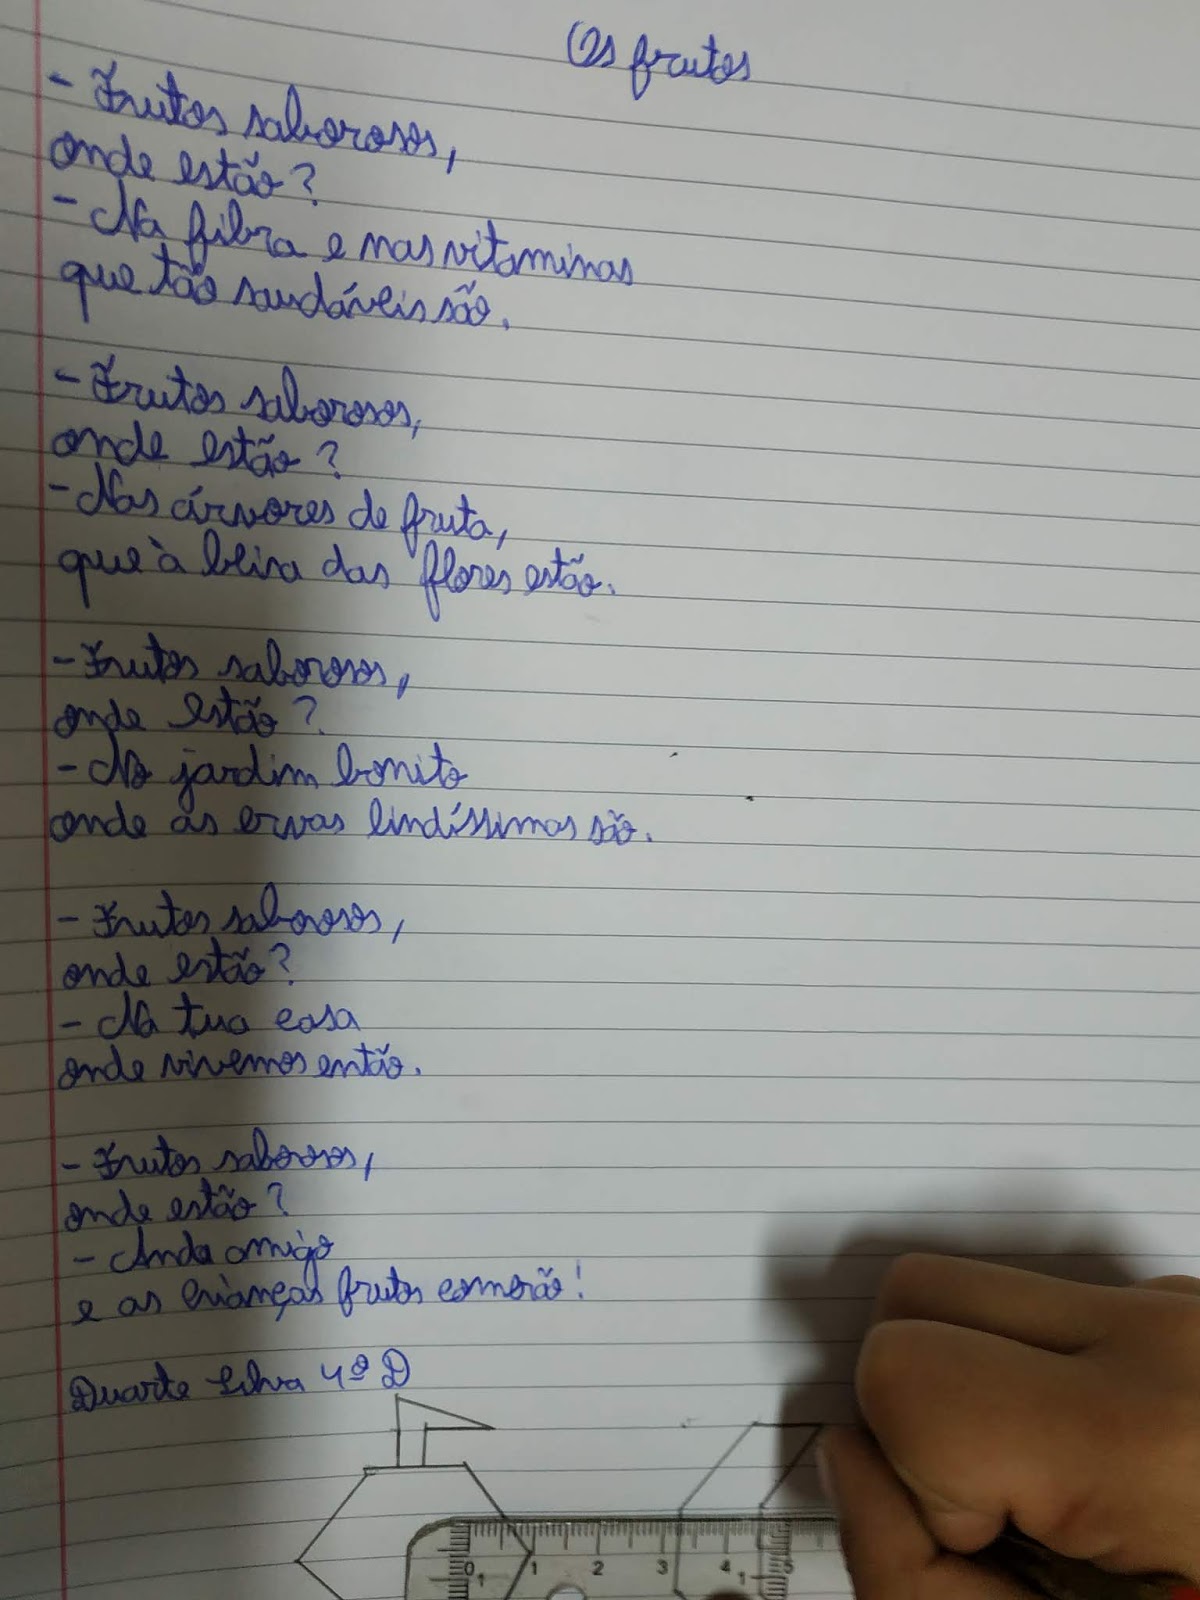 Os frutos
- Frutos saborosos,
onde estão?
- Na fibra e nas vitaminas
que tão saudáveis são.
- Frutos saborosos,
onde estão?
- Nas árvores de fruta,
que à beira das flores estão.
- Frutos saborosos,
onde estão?
- No jardim bonito
onde as ervas lindíssimas são.
- Frutos saborosos,
onde estão?
- Na tua casa
onde vivemos então.
- Frutos saborosos,
onde estão?
- Anda amigo
e as crianças frutos comerão!
Duarte Silva 4º D
0 1 2 3 4 5
1 1